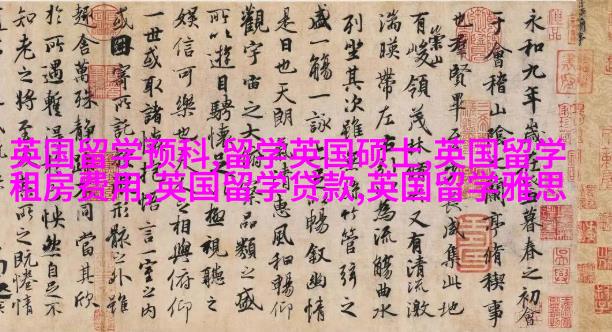 英国留学预科,留学英国硕士,英国留学
租房费用,英国留学贷款,英国留学雅思
永和九年歲在暮春之初會
于會稽山陰蘭亭脩禊事
也羣賢畢至長咸集此地
有崇山峻領茂林又有清流激
湍暎帶左右為流觴曲水
列坐其次雖竹管弦之
盛一觴一詠暢敘幽情
是日也天朗清惠風和暢仰
觀宇宙之大品類之盛
所以遊目騁懷足極視聽之
娛信可樂也之相與俯仰
一世或取諸悟言一室之內
或因寄所託形骸之外雖
趣舍萬殊靜躁同當其欣
於所遇暫得怏然自足不
知老之將至之既惓情